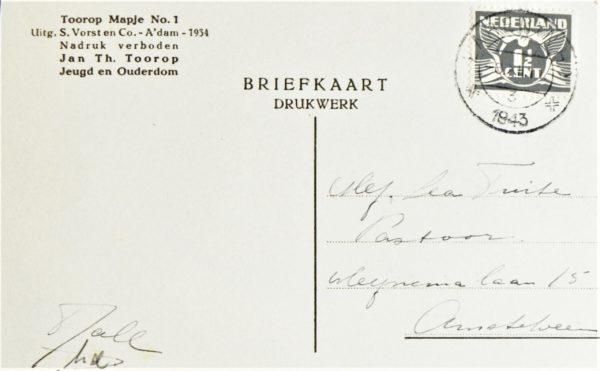 Toorop Mapje No. 1
Uitg. S. Vorst en Co. - A'dam - 1934
Nadruk verboden
Jan Th. Toorop
Jeugd en Ouderdom
BRIEFKAART
DRUKWERK
NEDERLAND
1½
CENT
3
1943
Mej. Lea
Pastoor
laan 15
Amstelveen